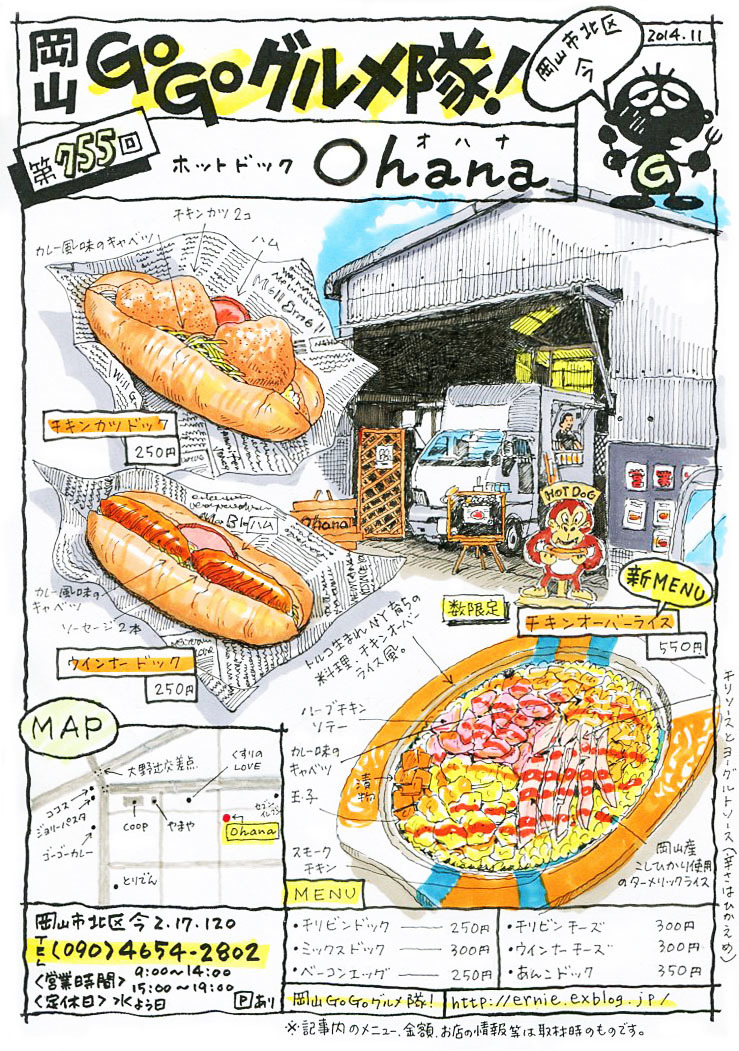 岡山GoGoグルメ隊!
岡山市北区
今
2014.11
G
第755回
ホットドック
オハナ
Ohana
チキンカツ2コ
カレー風味のキャベツ
ハム
チキンカツドック
250円
ハム
カレー風味の
キャベツ
ソーセージ2本
ウインナードック
250円
Ohana
営業
HOT DOG
新MENU
数限定
チキンオーバーライス
550円
トルコ生まれNY育ちの
料理、チキンオーバー
ライス風。
ハーブチキン
ソテー
カレー味の
キャベツ
漬物
玉子
スモーク
チキン
岡山産
こしひかり使用
のターメリックライス
チリソースとヨーグルトソース(辛さはひかえめ)
MAP
大野辻交差点
くすりの
LOVE
ココス
ジョリーパスタ
ゴーゴーカレー
COOP
やまや
セブン
イレブン
Ohana
とりでん
岡山市北区今2.17.120
TEL(090)4654-2802
<営業時間>9:00〜14:00
15:00〜19:00
<定休日>水よう日
Pあり
MENU
・チリビンドック 250円
・ミックスドック 300円
・ベーコンエッグ 250円
・チリビンチーズ 300円
・ウインナーチーズ 300円
・あんこドック 350円
岡山GoGoグルメ隊!
http://ernie.exblog.jp/
※記事内のメニュー、金額、お店の情報等は取材時のものです。